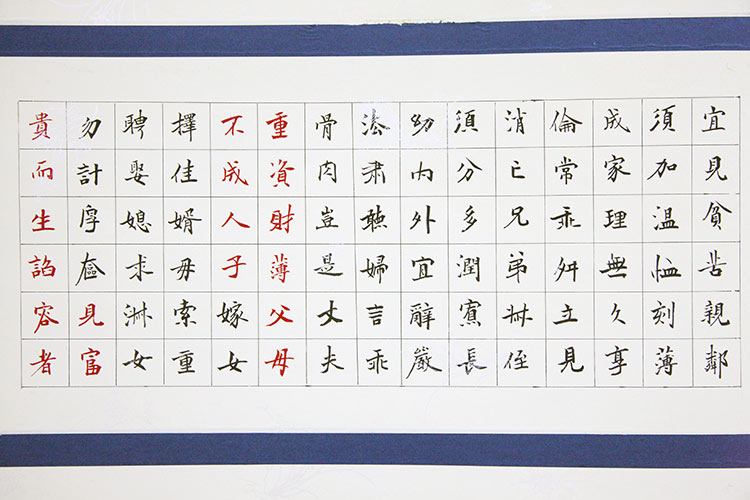 宜見貧苦親鄰
須加温恤刻薄
成家理無久享
倫常乖舛立見
消亡兄弟叔侄
須分多潤寡長
幼內外宜辭嚴
法肅聽婦言乖
骨肉豈是丈夫
重資財薄父母
不成人子嫁女
擇佳婿毋索重
聘娶媳求淑女
勿計厚奩見富
貴而生諂容者